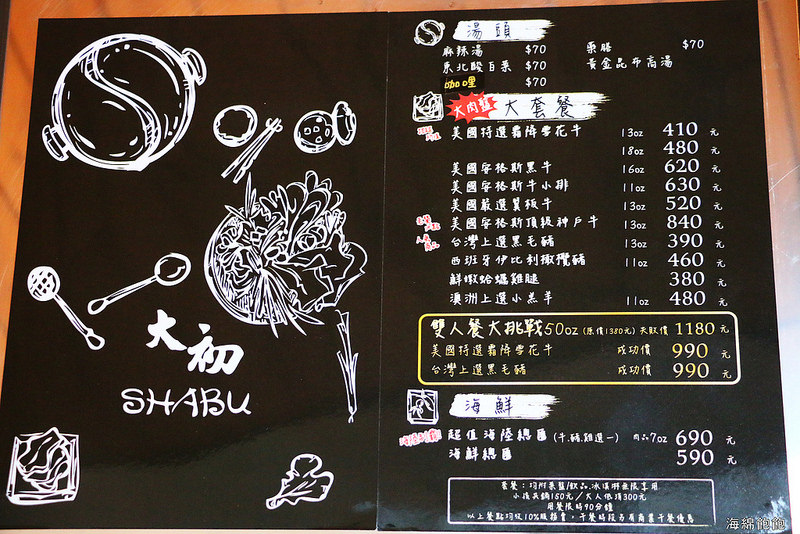 大初
SHABU
湯頭
麻辣湯 $70
東北酸白菜 $70
咖哩 $70
藥膳 $70
黃金昆布高湯
大肉盤 大套餐
美國特選霜降雪花牛 13oz 410 元
18oz 480 元
美國安格斯黑牛 16oz 620 元
美國安格斯牛小排 11oz 630 元
美國嚴選翼板牛 13oz 520 元
美國安格斯頂級神戶牛 13oz 840 元
人氣
台灣上選黑毛豬 13oz 390 元
西班牙伊比利橄欖豬 11oz 460 元
鮮嫩蛤蠣雞腿 380 元
澳洲上選小羔羊 11oz 480 元
雙人餐大挑戰50oz (原價1380元) 失敗價 1180 元
美國特選霜降雪花牛 成功價 990 元
台灣上選黑毛豬 成功價 990 元
海鮮
超值海陸總匯 (牛.豬.雞選一) 肉品7oz 690 元
海鮮總匯 590 元
套餐：均附菜盤/飲品.冰淇淋無限享用
小孩共鍋150元／大人低消300元
用餐限時90分鐘
以上餐點均收10%服務費，午餐時段另有商業午餐優惠
海綿飽飽